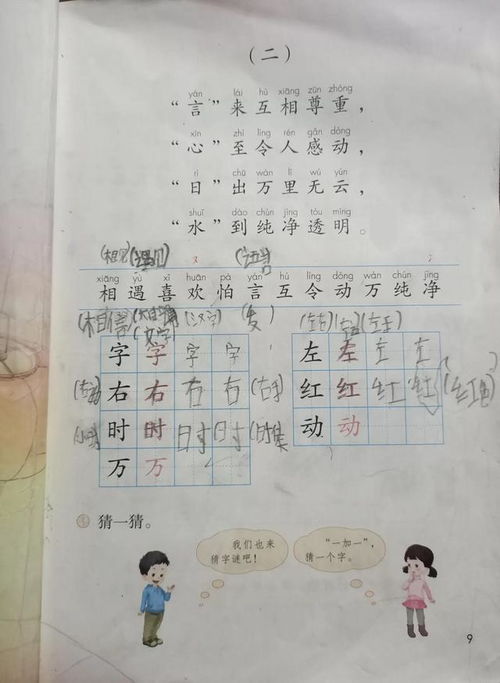 （二）
yán lái hù xiāng zūn zhòng
“言”来互相尊重，
xīn zhì lìng rén gǎn dòng
“心”至令人感动，
rì chū wàn lǐ wú yún
“日”出万里无云，
shuǐ dào chún jìng tòu míng
“水”到纯净透明。
(相见)(遇见) (语言)
xiāng yù xǐ huān pà yán hù lìng dòng wàn chún jìng
相遇喜欢怕言互令动万纯净
(文字) (左右) (左手)
字 字 字 字 左 左 左 左
右 右 右 右 (右手) 红 红 红 红 (红色)
时 时 时 时 动 动
万 万
猜一猜。
我们也来
猜字谜吧！
“一加一”，
猜一个字。
9